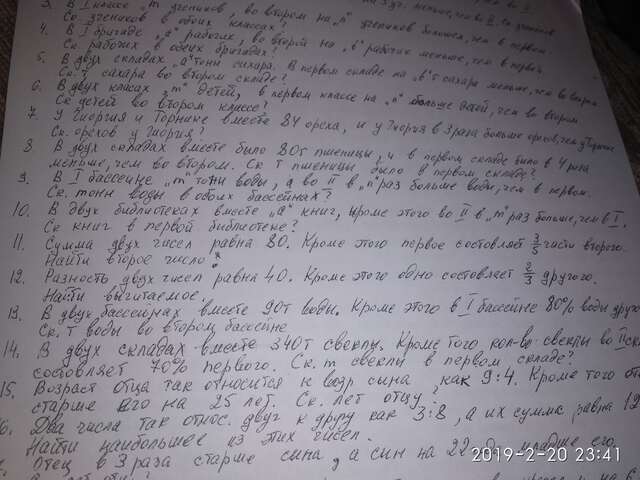 3. В I классе "m" учеников, во втором на "n" учеников больше, чем в первом.
Ск. учеников в обоих классах?
4. В I бригаде "a" рабочих, во второй на "в" рабочих меньше, чем в первой.
Ск. рабочих в обеих бригадах?
5. В двух складах "a" тонн сахара. В первом складе на "в" т сахара меньше, чем во втором
Ск. т сахара во втором складе?
6. В двух класах "m" детей, в первом классе на "n" больше детей, чем во втором
Ск детей во втором классе?
7. У Гиоргия и Торнике вместе 84 ореха, и у Гиоргия в 3 раза больше орехов, чем у Торнике
Ск. орехов у Гиоргия?
8. В двух складах вместе было 80т пшеницы, и в первом складе было в 4 раза
меньше, чем во втором. Ск т пшеницы было в первом складе?
9. В I бассейне "m" тонн воды, а во II в "n" раз больше воды, чем в первом.
Ск. тонн воды в обоих бассейнах?
10. В двух библиотеках вместе "a" книг, кроме этого во II в "m" раз больше, чем в I.
Ск книг в первой библиотеке?
11. Сумма двух чисел равна 80. Кроме этого первое состовляет 3/5 части второго.
Найти второе число.
12. Разность двух чисел равна 40. Кроме этого одно состовляет 2/3 другого.
Найти вычитаемое.
13. В двух бассейнах вместе 90т воды. Кроме этого в I бассейне 80% воды
Ск. т воды во втором басейне
14. В двух складах вместе 340т свеклы. Кроме того, кол-во свеклы во II
состовляет 70% первого. Ск. т свеклы в первом складе?
15. Возраст отца так относится к возр сына, как 9:4. Кроме того
старше его на 25 лет. Ск. лет отцу?
16. Два числа так относ. друг к другу как 3:8, а их сумма равна
Найти наибольшее из этих чисел.
Отец в 3 раза старше сына, а сын на 22 младше его.
2019-2-20 23:41